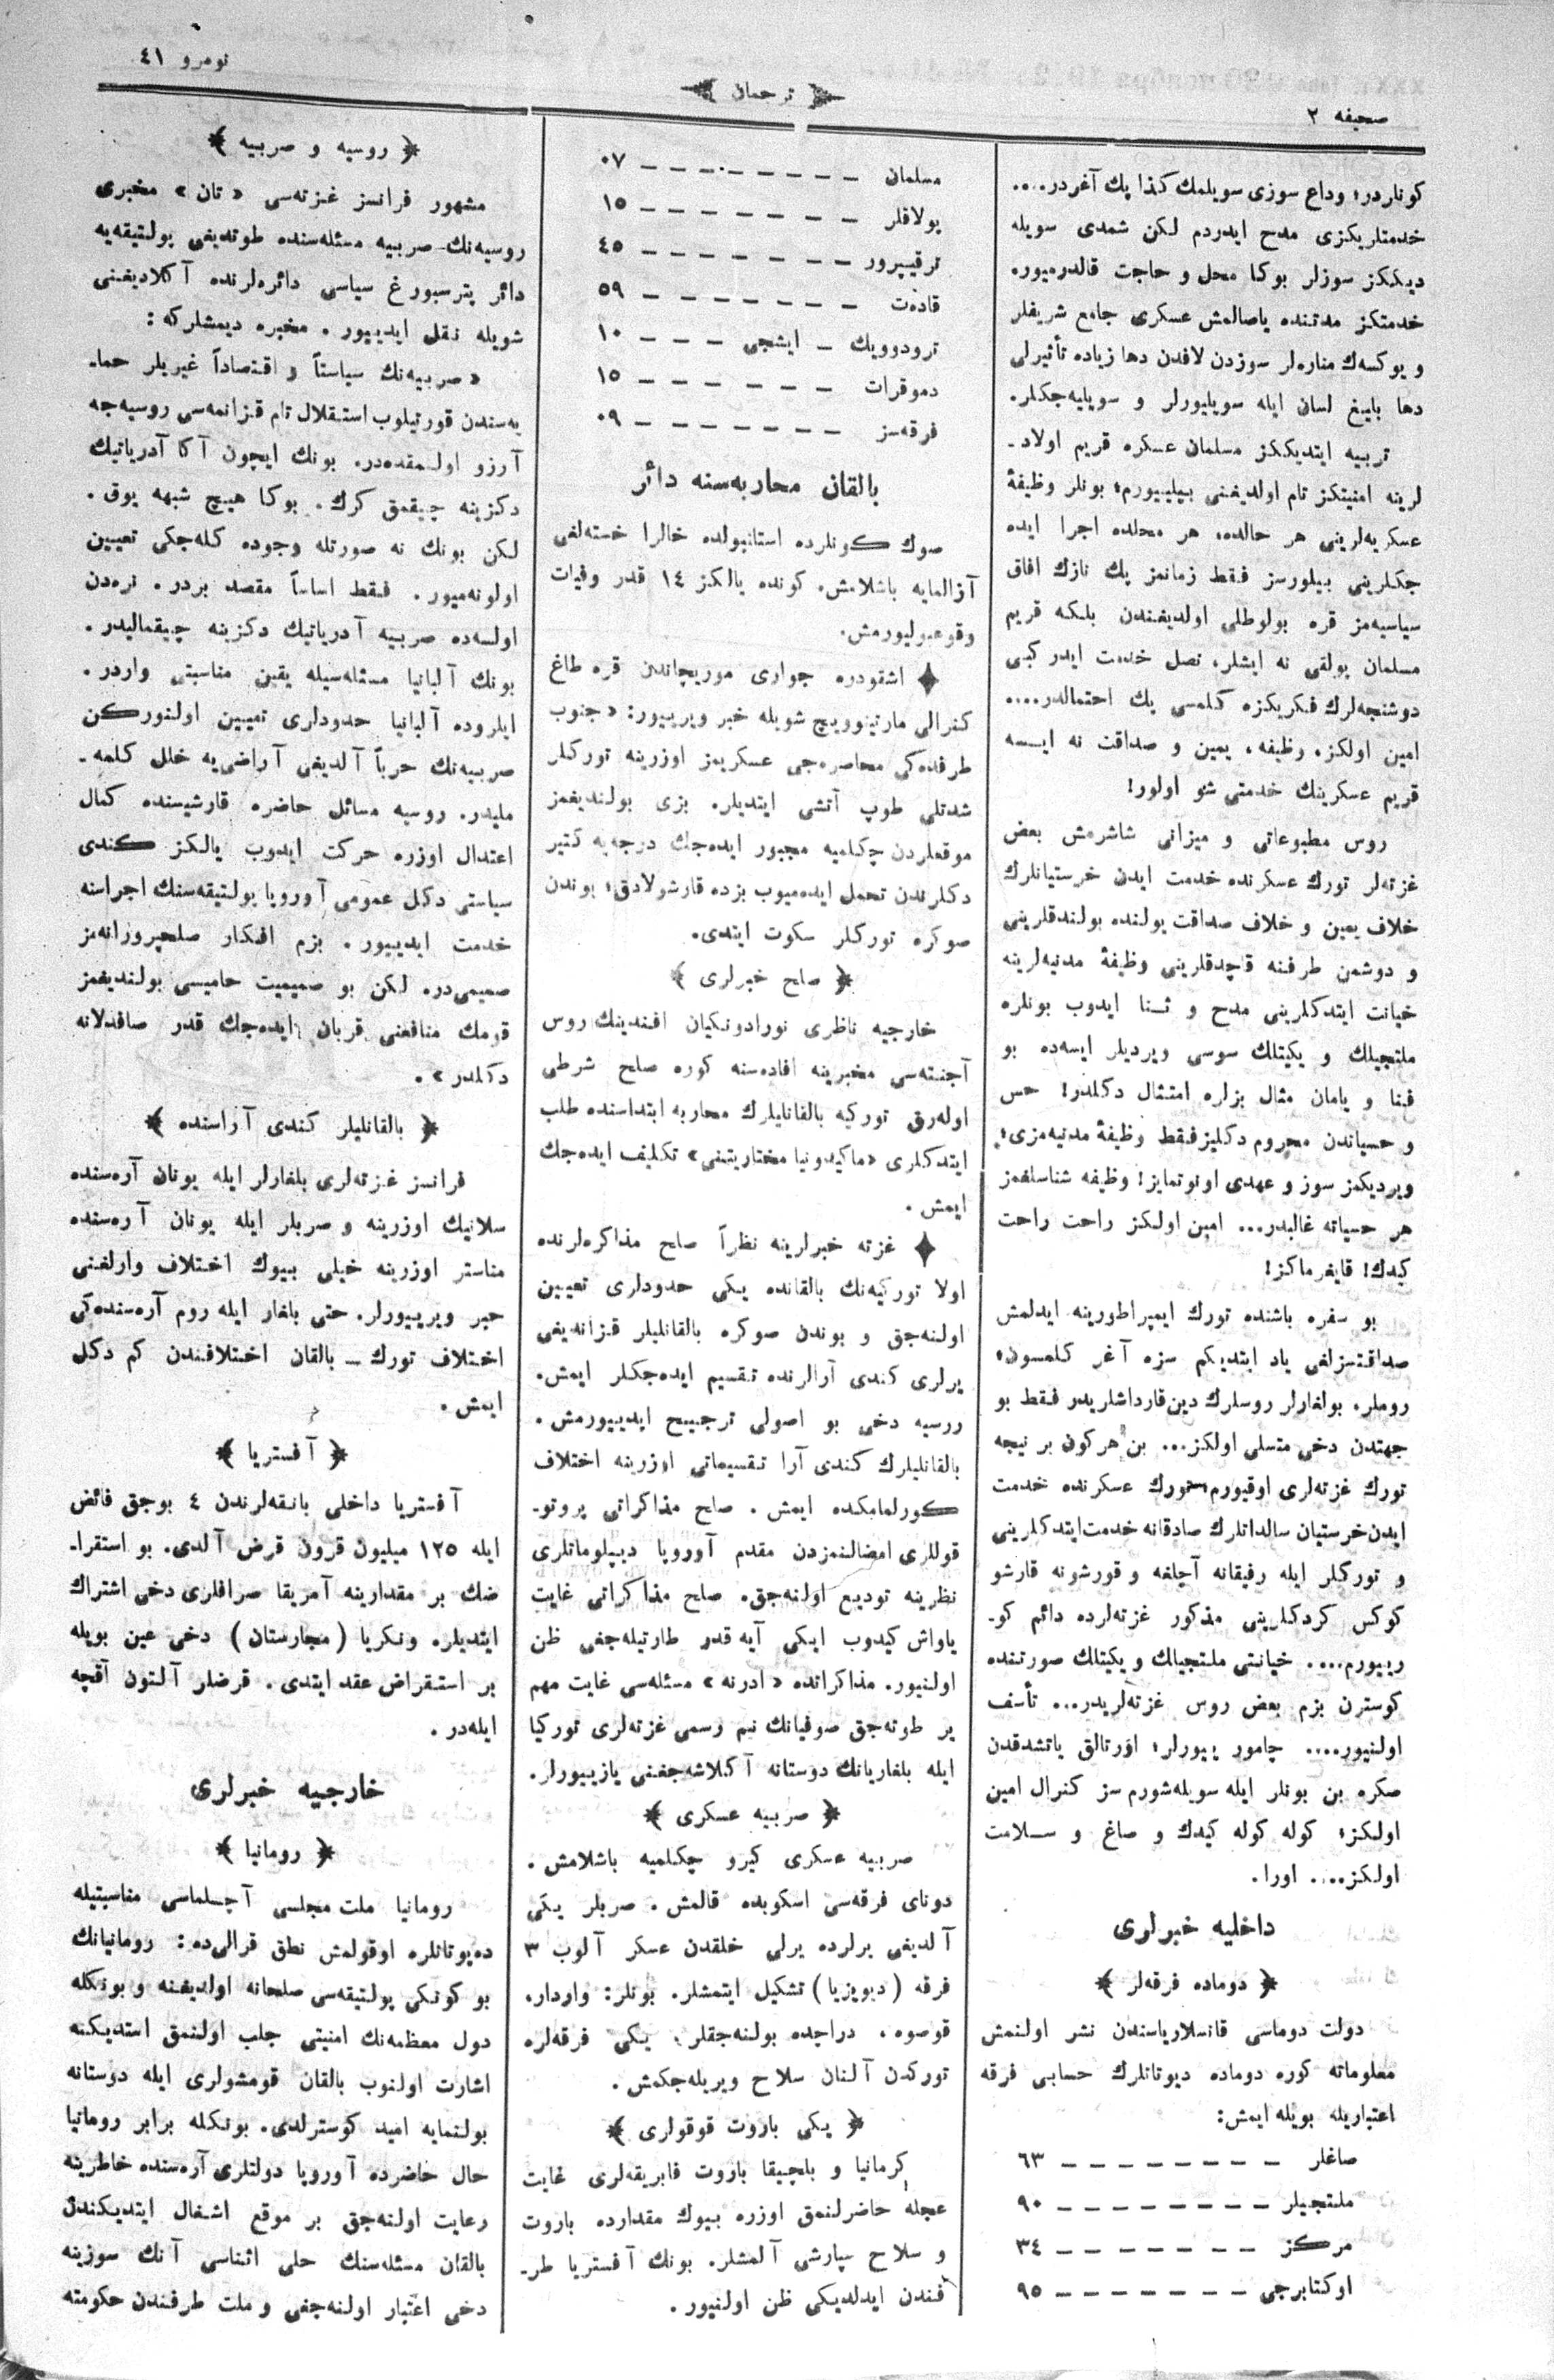 صحیفه ٢
ترجمان
نومرو ٤١
کوناردر؛ وداع سوزی سویلمك کذا پك آغردر....
خدمتلریکزی مدح ایدردم لکن شمدی سویله
دیککز سوزلر بوکا محل و حاجت قالدرمیور.
خدمتکز مدتنده یاصالمش عسکری جامع شریفلر
و یوکسه‌ك مناره‌لر سوزدن لافدن دها زیاده تأثیرلی
دها بلیغ لسان ایله سویلیورلر و سویلیه‌جکلر.
تربیه ایتدیککز مسلمان عسکره قریم اولاد-
لرینه امنیتکز تام اولدیغنی بیلییورم؛ بونلر وظیفۀ
عسکریه‌لرینی هر حالده، هر محلده اجرا ایده
جکلرینی بیلورسز فقط زمانمز پك نازك افاق
سیاسیه‌مز قره بولوطلی اولدیغندن بلکه قریم
مسلمان بولقی نه ایشلر، نصل خدمت ایدر کبی
دوشنجه‌لرك فکریکزه کلمسی پك احتمالدر....
امین اولکز، وظیفه، یمین و صداقت نه ایسه
قریم عسکرینك خدمتی شو اولور!
روس مطبوعاتی و میزانی شاشرمش بعض
غزته‌لر تورك عسکرنده خدمت ایدن خرستیانلرك
خلاف یمین و خلاف صداقت یولنده بولندقلرینی
و دوشمن طرفنه قاچدقلرینی وظیفۀ مدنیه‌لرینه
خیانت ایتدکلرینی مدح و ثنا ایدوب بونلره
ملتجیلك و یکیتلك سوسی ویردیلر ایسه‌ده بو
فنا و یامان مثال بزلره امتثال دکلدر! حس
و حسیاتدن محروم دکلیز فقط وظیفۀ مدنیه‌مزی؛
ویردیکمز سوز و عهدی اونوتمایز! وظیفه شناسلغمز
هر حسیاته غالبدر... امین اولکز راحت راحت
کیدك! قایغرماکز!
بو سفره باشنده تورك ایمپراطورینه ایدلمش
صداقتسزلغی یاد ایتدیکم سزه آغر کلمسون؛
روملر، بولغارلر روسلرك دین قارداشلریدر فقط بو
جهتدن دخی متسلی اولکز... بن هرکون بر نیجه
تورك غزته‌لری اوقیورم، تورك عسکرنده خدمت
ایدن خرستیان سالداتلرك صادقانه خدمت ایتدکلرینی
و تورکلر ایله رفیقانه آچلغه و قورشونه قارشو
کوکس کردکلرینی مذکور غزته‌لرده دائم کو-
رییورم.... خیانتی ملتجیالك و یکیتلك صورتنده
کوسترن بزم بعض روس غزته‌لریدر... تأسف
اولنیور.... چامور ییورلر؛ اورتالق یاتشدقدن
صکره بن بونلر ایله سویله‌شورم سز کنرال امین
اولکز؛ کوله کوله کیدك و صاغ و سلامت
اولکز.... اورا.
داخلیه خبرلری
﴿ دوماده فرقه‌لر ﴾
دولت دوماسی قانسلاریاسندن نشر اولنمش
معلوماته کوره دوماده دپوتاتلرك حسابی فرقه
اعتباریله بویله ایمش:
صاغلر – – – – – – – – ٦٣
ملتجیلر – – – – – – – – ٩٠
مرکز – – – – – – – ٣٤
اوکتابرجی – – – – – – – ٩٥
مسلمان – – – – – – – – ٠٧
پولاقلر – – – – – – – – ١٥
ترقیپرور – – – – – – – ٤٥
قاده‌ت – – – – – – – – ٥٩
ترودوویك – ایشجی – – – ١٠
دموقرات – – – – – – – ١٥
فرقه‌سز – – – – – – – – ٠٩
بالقان محاربه‌سنه دائر
صوك کونلرده استانبولده خالرا خسته‌لغی
آزالمایه باشلامش. کونده یالکز ١٤ قدر وفیات
وقوعبولیورمش.
اشقودره جواری موریچاندن قره طاغ
کنرالی مارتینوویچ شویله خبر ویرییور: «جنوب
طرفده‌کی محاصره‌جی عسکریمز اوزرینه تورکلر
شدتلی طوپ آتشی ایتدیلر. بزی بولندیغمز
موقعلردن چکلمیه مجبور ایده‌جك درجه‌یه کتیر
دکلرندن تحمل ایده‌میوب بزده قارشولادق؛ بوندن
صوکره تورکلر سکوت ایتدی.
﴿ صلح خبرلری ﴾
خارجیه ناظری نورادونکیان افندینك روس
آجنته‌سی مخبرینه افاده‌سنه کوره صلح شرطی
اوله‌رق تورکیه بالقانلیلرك محاربه ابتداسنده طلب
ایتدکلری «ماکیدونیا مختاریتنی» تکلیف ایده‌جك
ایمش.
غزته خبرلرینه نظراً صلح مذاکره‌لرنده
اولا تورکیه‌نك بالقانده یکی حدودلری تعیین
اولنه‌جق و بوندن صوکره بالقانلیلر قزانه‌یغی
یرلری کندی آرالرنده تقسیم ایده‌جکلر ایمش.
روسیه دخی بو اصولی ترجیح ایدییورمش.
بالقانلیلرك کندی آرا تقسیماتی اوزرینه اختلاف
کورلمامکده ایمش. صلح مذاکراتی پروتو-
قوللری امضالنمزدن مقدم آوروپا دیپلوماتلری
نظرینه تودیع اولنه‌جق. صلح مذاکراتی غایت
یاواش کیدوب ایکی آیه قدر طارتیله‌جغی ظن
اولنیور. مذاکراتده «ادرنه» مسئله‌سی غایت مهم
یر طوته‌جق صوفیانك نیم رسمی غزته‌لری تورکیا
ایله بلغاریانك دوستانه آکلاشه‌جغنی یازییورلر.
﴿ صربیه عسکری ﴾
صربیه عسکری کیرو چکلمیه باشلامش.
دونای فرقه‌سی اسکوبده قالمش. صربلر یکی
آلدیغی یرلرده یرلی خلقدن عسکر آلوب ٣
فرقه (دیویزیا) تشکیل ایتمشلر. بونلر: واردار،
قوصوه، دراجده بولنه‌جقلر. یکی فرقه‌لره
تورکدن آلنان سلاح ویریله‌جکمش.
﴿ یکی باروت قوقولری ﴾
کرمانیا و بلچیقا باروت فابریقه‌لری غایت
عجله حاضرلنمق اوزره بیوك مقدارده باروت
و سلاح سپارشی آلمشلر. بونك آفستریا طر-
فندن ایدلدیکی ظن اولنیور.
﴿ روسیه و صربیه ﴾
مشهور فرانسز غزته‌سی «تان» مخبری
روسیه‌نك صربیه مسئله‌سنده طوته‌یغی پولتیقه‌یه
دائر پترسبورغ سیاسی دائره‌لرنده آکلادیغنی
شویله نقل ایدییور. مخبره دیمشلرکه:
«صربیه‌نك سیاستاً و اقتصاداً غیریلر حما-
یه‌سندن قورتیلوب استقلال تام قزانمه‌سی روسیه‌جه
آرزو اولنمقده‌در. بونك ایچون آکا آدریاتیك
دکزینه چیقمق کرك. بوکا هیچ شبهه یوق.
لکن بونك نه صورتله وجوده کله‌جکی تعیین
اولونه‌میور. فقط اساساً مقصد بردر. نره‌دن
اولسه‌ده صربیه آدریاتیك دکزینه چیقمالیدر.
بونك آلبانیا مسئله‌سیله یقین مناسبتی واردر.
ایلروده آلبانیا حدودلری تعیین اولنورکن
صربیه‌نك حرباً آلدیغی آراضی‌یه خلل کلمه-
ملیدر. روسیه مسائل حاضره قارشیسنده کمال
اعتدال اوزره حرکت ایدوب یالکز کندی
سیاستی دکل عمومی آوروپا پولتیقه‌سنك اجراسنه
خدمت ایدییور. بزم افکار صلحپرورانه‌مز
صمیمی‌در. لکن بو صمیمیت حامیسی بولندیغمز
قومك منافعنی قربان ایده‌جك قدر صافدلانه
دکلدر».
﴿ بالقانلیلر کندی آراسنده ﴾
فرانسز غزته‌لری بلغارلر ایله یونان آره‌سنده
سلانیك اوزرینه و صربلر ایله یونان آره‌سنده
مناستر اوزرینه خیلی بیوك اختلاف وارلغنی
خبر ویرییورلر. حتی بلغار ایله روم آره‌سنده‌کی
اختلاف تورك – بالقان اختلافندن کم دکل
ایمش.
﴿ آفستریا ﴾
آفستریا داخلی بانقه‌لرندن ٤ بوجق فائض
ایله ١٢٥ میلیون قرون قرض آلدی. بو استقرا-
ضك بر مقدارینه آمریقا صرافلری دخی اشتراك
ایتدیلر. ونکریا (مجارستان) دخی عین بویله
بر استقراض عقد ایتدی. قرضلر آلتون آقچه
ایله‌در.
خارجیه خبرلری
﴿ رومانیا ﴾
رومانیا ملت مجلسی آچلماسی مناسبتیله
ده‌پوتاتلره اوقولمش نطق قرالی‌ده: رومانیانك
بو کونکی پولتیقه‌سی صلحانه اولدیغنه و بونکله
دول معظمه‌نك امنیتی جلب اولنمق استدیکنه
اشارت اولنوب بالقان قومشولری ایله دوستانه
بولنمایه امید کوسترلدی. بونکله برابر رومانیا
حال حاضرده آوروپا دولتلری آره‌سنده خاطرینه
رعایت اولنه‌جق بر موقع اشغال ایتدیکندن
بالقان مسئله‌سنك حلی اثناسی آنك سوزینه
دخی اعتبار اولنه‌جغی و ملت طرفندن حکومته